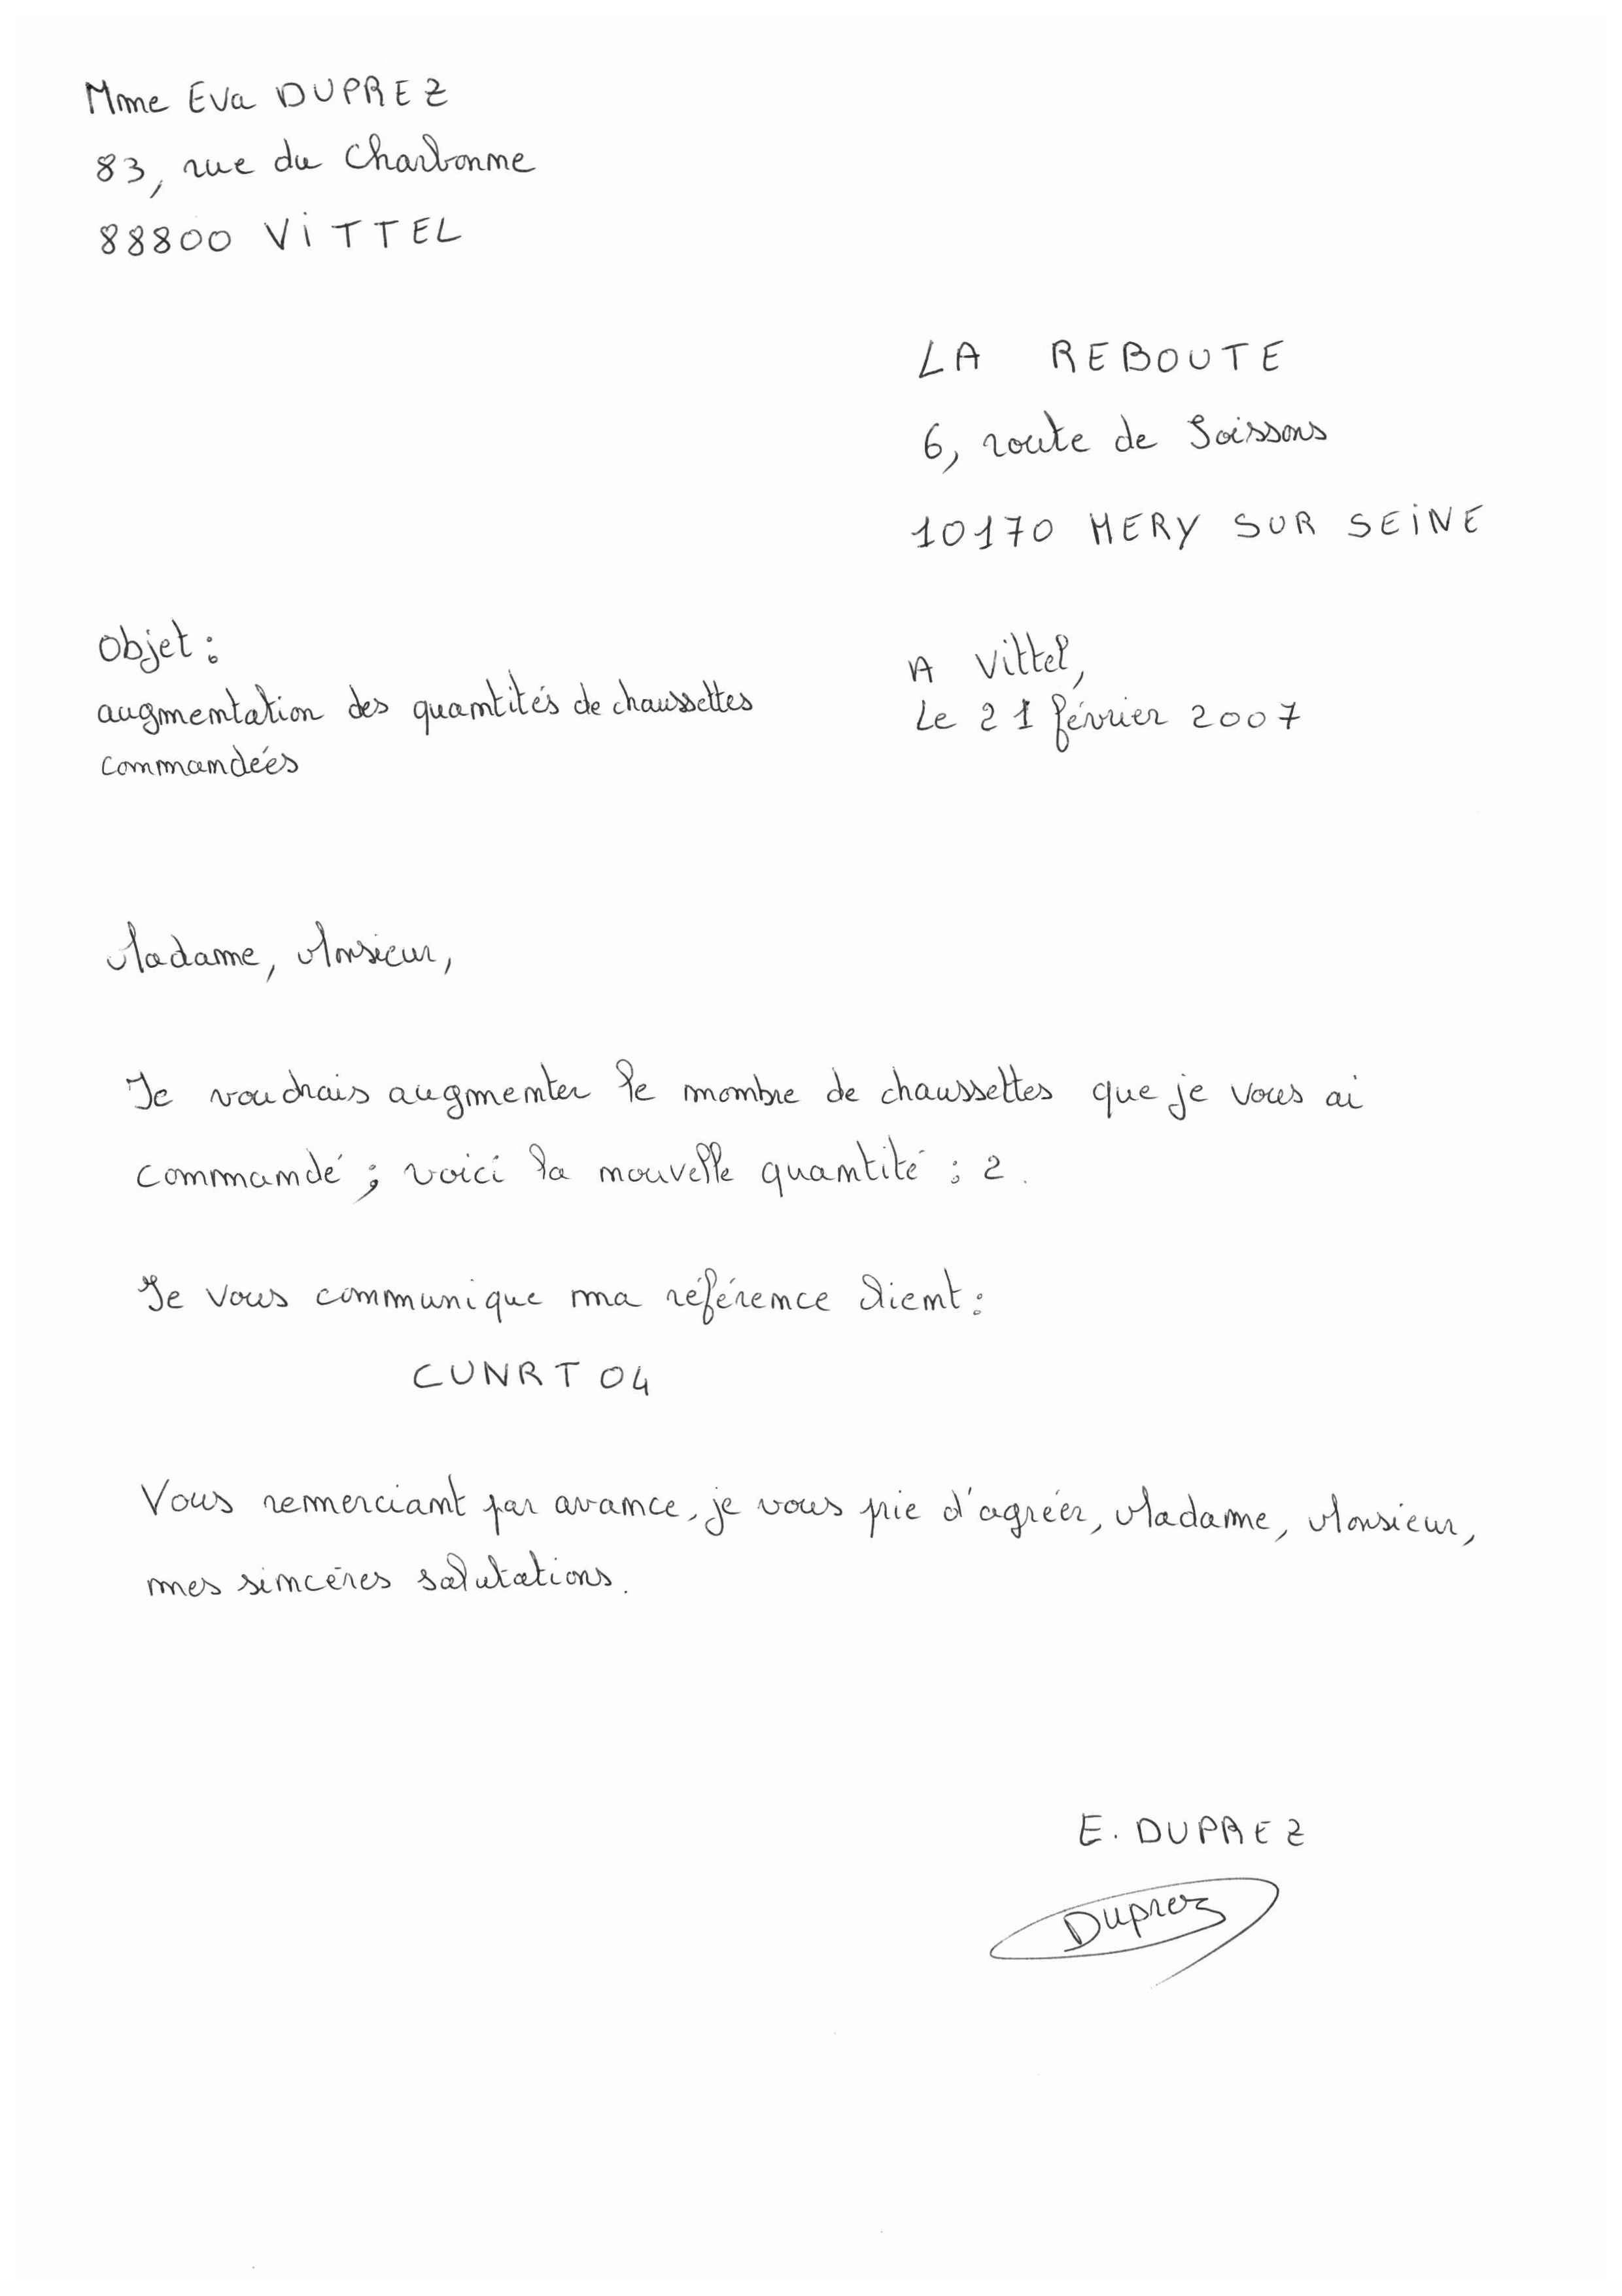 Mme Eva DUPREZ
83, rue du Charbonne
88800 VITTEL
LA REBOUTE
6, route de Soissons
10170 MERY SUR SEINE
Objet :
augmentation des quantités de chaussettes
commandées
A Vittel,
Le 21 février 2007
Madame, Monsieur,
Je voudrais augmenter le nombre de chaussettes que je vous ai
commandé ; voici la nouvelle quantité : 2.
Je vous communique ma référence client :
CUNRT04
Vous remerciant par avance, je vous prie d'agréer, Madame, Monsieur,
mes sincères salutations.
E. DUPREZ
Duprez